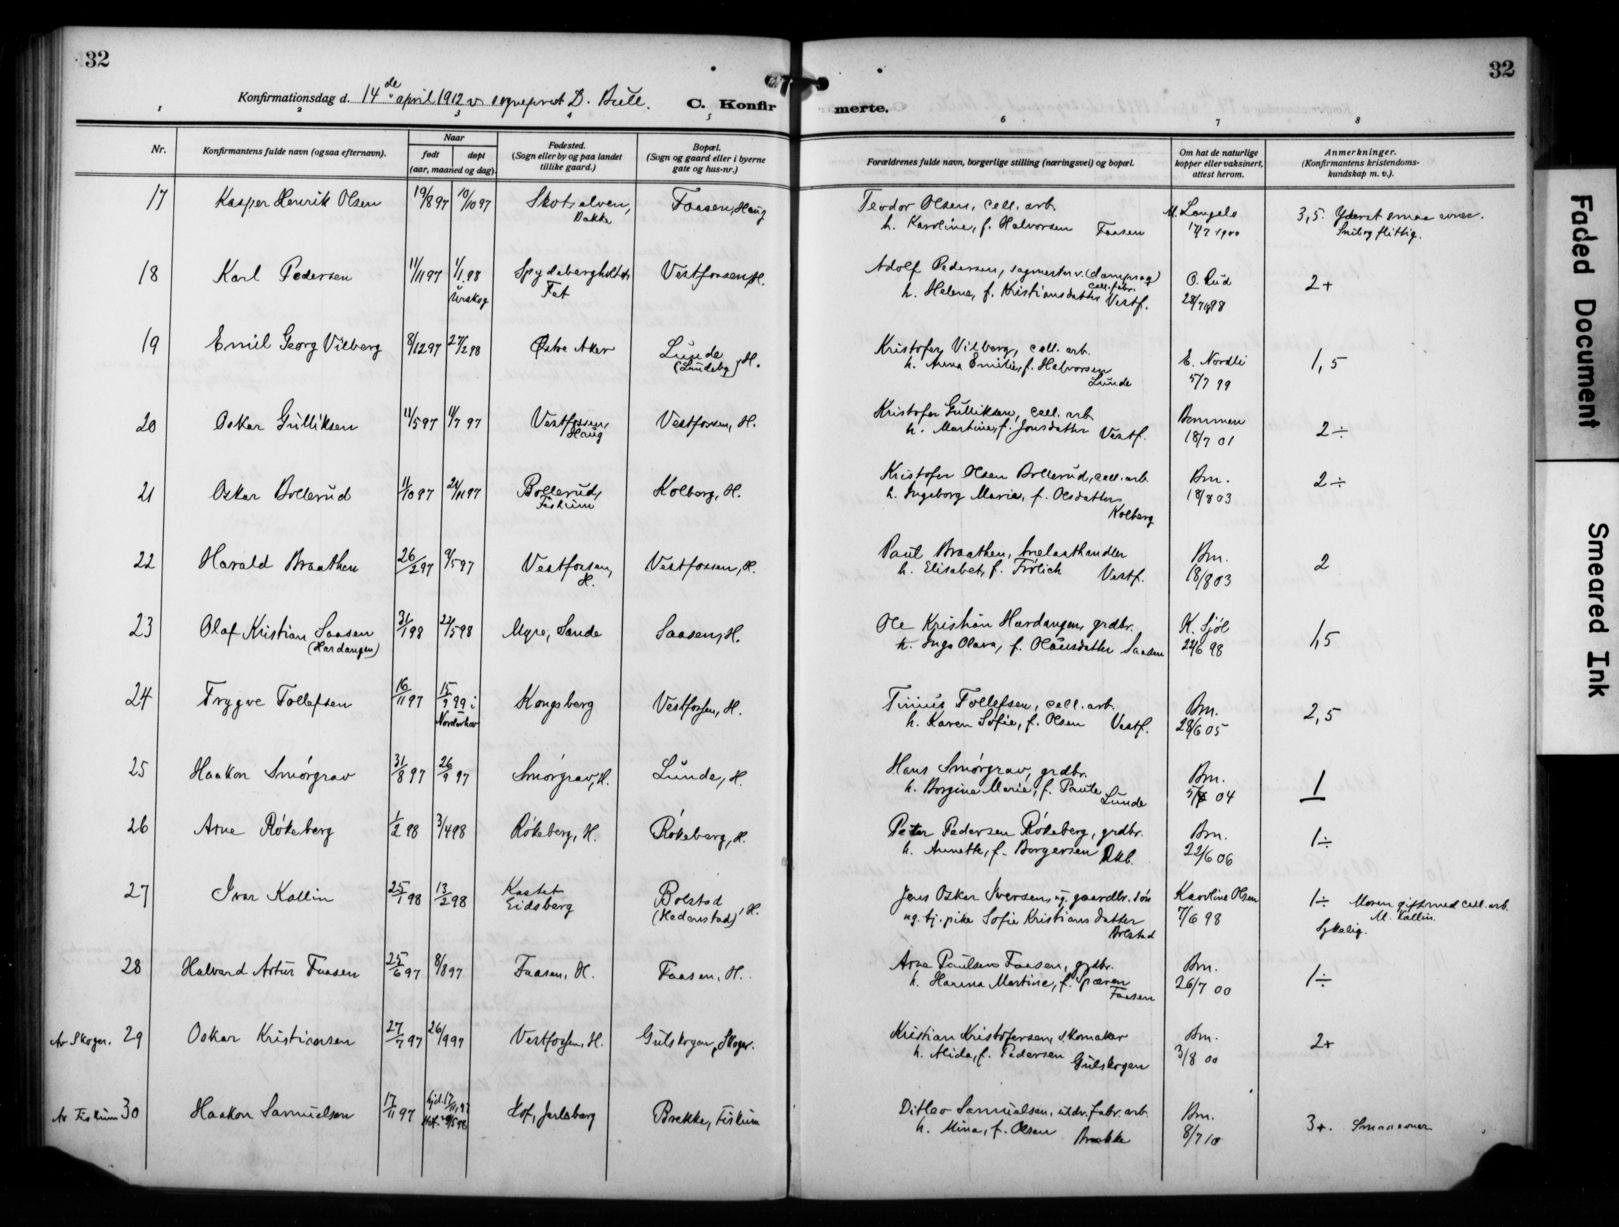 32
32
Konfirmationsdag d. 14de april 1912 v. sogneprest D. Bull.
C. Konfirmerte.
1 2 3 4 5 6 7 8
Nr.
Konfirmantens fulde navn (ogsaa efternavn).
Naar
født
døpt
(aar, maaned og dag).
Fødested.
(Sogn eller by og paa landet
tillike gaard.)
Bopæl.
(Sogn og gaard eller i byerne
gate og hus-nr.)
Forældrenes fulde navn, borgerlige stilling (næringsvei) og bopæl.
Om hat de naturlige
kopper eller vaksinert,
attest herom.
Anmerkninger.
(Konfirmantens kristendoms-
kundskap m. v.).
17 Kasper Henrik Olsen 19/8 97 10/10 97 Skotselven, Fossen, Haug Teodor Olsen, cell. arb. M. Langele 3,5. Yderst smaa evner.
Bakke h. Karoline, f. Halvorsen Faasen 17/7 1900 Snil og flittig.
18 Karl Pedersen 11/11 97 1/1 98 Vestfossen, H. Adolf Pedersen, sagmester v. (dampsag) O. Rud 2+
Urskog Fet cell.fabr. h. Helene, f. Kristiansdatter Vestf.
19 Emil Georg Vilberg 8/12 97 27/2 98 Østre Aker Lunde Kristofer Vilberg, cell. arb. E. Nordli 1,5
(Lundeby), H. h. Anna Emilie, f. Halvorsen Lunde 5/7 99
20 Oskar Gulliksen 11/5 97 11/7 97 Vestfossen, Vestfossen, H. Kristofer Gulliksen, cell. arb. 2÷
Haug h. Martine, f. Jonsdatter Vestf. 18/7 01
21 Oskar Bollerud Bollerud, Kolberg, H. Kristofer Olsen Bollerud, cell. arb. Bm. 2÷
Fiskum h. Ingeborg Marie, f. Olsdatter 18/8 03
Kolberg
22 Harald Braathen 26/2 97 9/5 97 Vestfossen, Vestfossen, H. Paul Braathen, trælasthandler Bm. 2
H. h. Elisabet, f. Frölich Vestf. 18/8 03
23 Olaf Kristian Saasen 31/1 98 Myre, Sande Saasen, H. Ole Kristian Hardangen, grdbr. K. Sjøl 1,5
(Hardangen) h. Inga Olava, f. Olausdatter Saasen
24 Trygve Tollefsen 16/11 97 15/9 99 i Kongsberg Vestfossen, H. Tinius Tollefsen, cell. arb. Bm. 2,5
Norderhov h. Karen Sofie, f. Olsen Vestf. 28/6 05
25 Haakon Smørgrav 31/8 97 26/9 97 Smørgrav, H. Lunde, H. Hans Smørgrav, grdbr. Bm. 1
h. Borgine Marie, f. Paule Lunde 04
26 Arne Røkeberg 1/2 98 3/4 98 Røkeberg, H. Røkeberg, H. Peter Pedersen Røkeberg, grdbr. Bm. 1÷
h. Annette, f. Borgersen Rkb. 22/6 06
27 Ivar Kollin 25/1 98 13/2 98 Kastet Bolstad Jens Oskar Iversen, ug. gaardbr. søn Karoline Olsen 1÷ Moren gift med cell. arb.
Eidsberg (Hedenstad), H. ug. tj. pike Sofie Kristiansdatter 7/6 98 M. Kollin.
Bolstad Sykelig.
28 Halvard Artur Faasen 25/6 97 8/8 97 Faasen, H. Faasen, H. Arne Paulsen Faasen, grdbr. Bm. 1÷
h. Harena Martine, f. 26/7 00
Faasen
Av Skoger. 29 Oskar Kristiansen 27/7 97 26/9 97 Vestfossen, H. Gulskogen, Skoger. Kristian Kristofersen, skomaker Bm. 2+
h. Alida, f. Pedersen Gulskogen 3/8 00
Av Fiskum 30 Haakon Samuelsen 17/11 97 Hof, Jarlsberg Brekke, Fiskum Ditlev Samuelsen, fabr. arb. Bm. 3+. Smaa evner
h. Mina, f. Olsen Brekke 8/7 10
Faded Document
Smeared Ink